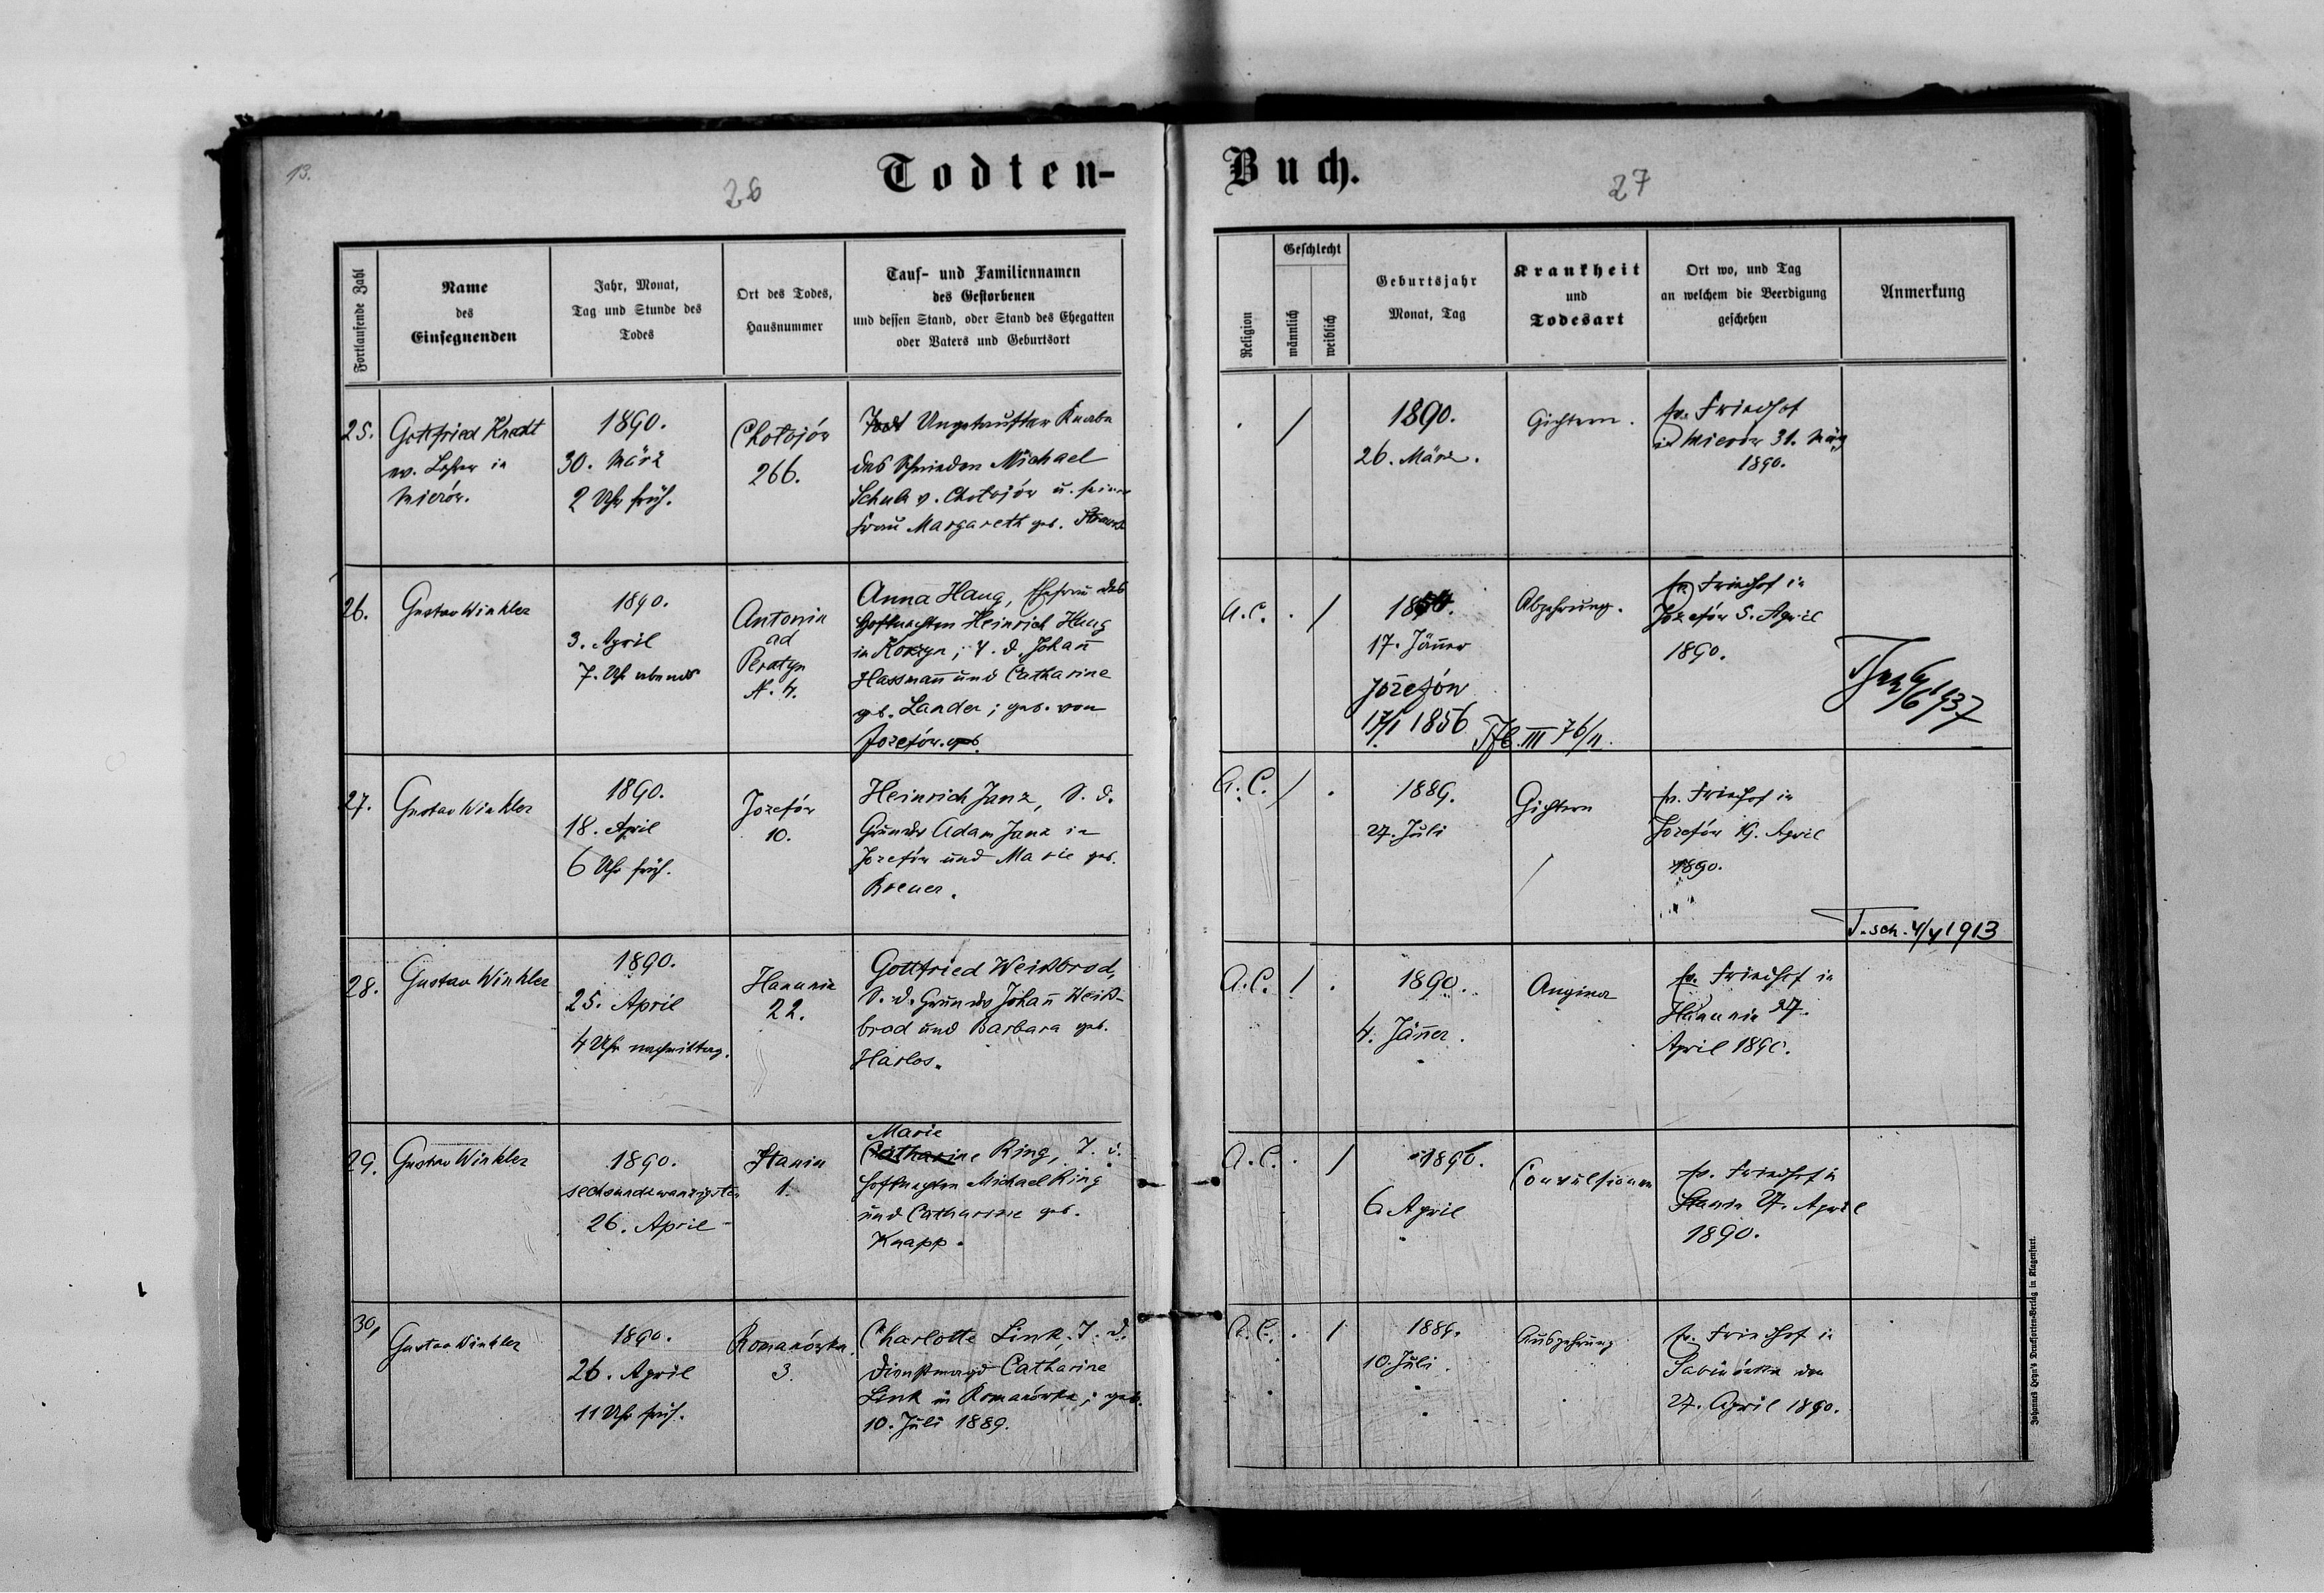 13.
26
Todten-
Fortlaufende Zahl
Name
des
Einsegnenden
Jahr, Monat,
Tag und Stunde des
Todes
Ort des Todes,
Hausnummer
Tauf- und Familiennamen
des Gestorbenen
und dessen Stand, oder Stand des Ehegatten
oder Vaters und Geburtsort
25.
Gottfried Knedt
ev. Lehrer in
Mierów.
1890.
30. März
2 Uhr früh.
Chotojów
266.
Ungetaufter Knabe
des Schmiedes Michael
Schulz v. Chotojów u. seiner
Frau Margareth geb.
26.
Gustav Winkler
1890.
3. April
7. Uhr abends
Antonin
ad
Peratyn
N. 4.
Anna Haug, Ehefrau des
Hofknechten Heinrich Haug
in Korzyn; T. d. Johañ
Hassmañ und Catharine
geb. Lander; geb. von
Jozefów. geb.
27.
Gustav Winkler
1890.
18. April
6 Uhr früh.
Jozefów
10.
Heinrich Janz, S. d.
Grundw Adam Janz in
Jozefów und Marie geb.
Brener.
28.
Gustav Winkler
1890.
25. April
4 Uhr nachmittag.
Hanunin
22.
Gottfried Weißbrod,
S. d. Grundw Johañ Weiß-
brod und Barbara geb.
Harlos.
29.
Gustav Winkler
1890.
sechsundzwanzigsten
26. April
Stanin
1.
Marie
Catharine Ring, T. d.
Hofknechten Michael Ring
und Catharine geb.
Knapp.
30,
Gustav Winkler
1890.
26. April
11 Uhr früh.
Romanówka.
3.
Charlotte Link, T. d.
Dienstmagd Catharine
Link in Romanówka; geb.
10. Juli 1889.
Buch.
27
Religion
Geschlecht
männlich
weiblich
Geburtsjahr
Monat, Tag
Krankheit
und
Todesart
Ort wo, und Tag
an welchem die Beerdigung
geschehen
Anmerkung
. /
1890.
26. März.
Gichtern.
ev. Friedhof
in Mierów 31. März
1890.
A.C. . /
1856.
17. Jäñer
Józefów
17/I 1856
Tfb. III 76/11.
Abzehrung.
ev. Friedhof in
Jozefów 5. April
1890.
1937
A.C. / .
1889.
27. Juli
Gichtern
ev. Friedhof in
Jozefów 19. April
1890.
T.sch. 4/V 1913
A.C. / .
1890.
4. Jäñer.
Angina
ev. Friedhof in
Hanunin 27.
April 1890.
A.C. . /
1890.
6. April
Convulsionen
ev. Friedhof in
Stanin 27. April
1890.
A.C. . /
1889.
10. Juli.
Auszehrung
ev. Friedhof in
Sabinówka den
27. April 1890.
Johannes Heyn's Drucksorten-Verlag in Klagenfurt.